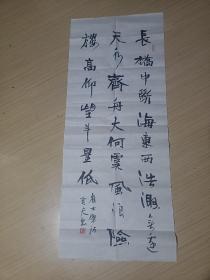 長橋中斷海東西浩渺無邊
天水齊舟大何虞風浪險
樓高仰望斗星低